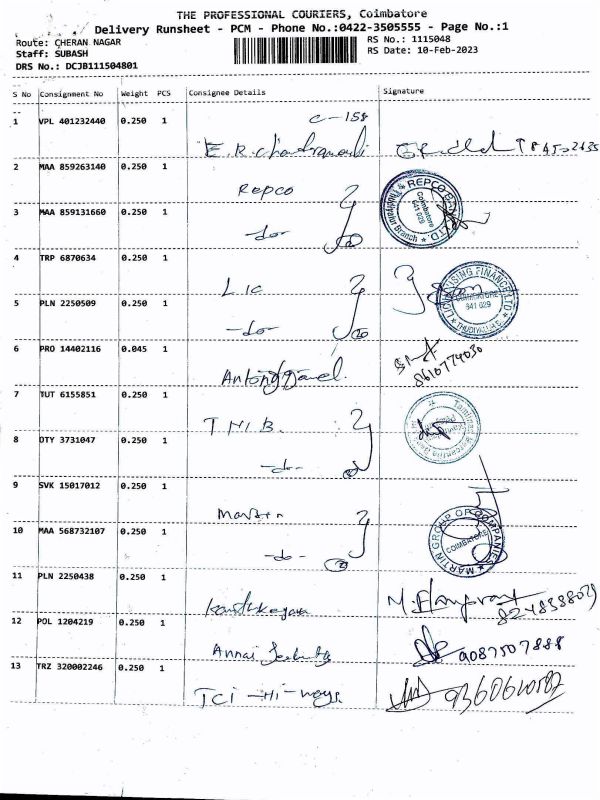 THE PROFESSIONAL COURIERS, Coimbatore
Delivery Runsheet - PCM - Phone No.:0422-3505555 - Page No.:1
Route: CHERAN NAGAR RS No.: 1115048
Staff: SUBASH RS Date: 10-Feb-2023
DRS No.: DCJB111504801
S No Consignment No Weight PCS Consignee Details Signature
1 VPL 401232440 0.250 1 C-158
E.R.
2 MAA 859263140 0.250 1 Repco 2
REPCO BANK LTD. Coimbatore 641 029 Thudiyalur Branch
3 MAA 859131660 0.250 1 -do-
4 TRP 6870634 0.250 1 LIC 2
LIC HOUSING FINANCE LTD COIMBATORE 641 029 THUDIYALUR
5 PLN 2250509 0.250 1 -do-
6 PRO 14402116 0.045 1
8610774030
7 TUT 6155851 0.250 1 T N.B. 2
Tamilnad Mercantile Bank
8 OTY 3731047 0.250 1 -do-
9 SVK 15017012 0.250 1 Martin 2
MARTIN GROUP OF COMPANIES COIMBATORE
10 MAA 568732107 0.250 1 -do-
11 PLN 2250438 0.250 1
8248388029
12 POL 1204219 0.250 1 Annai
9087507888
13 TRZ 320002246 0.250 1 TCI -Hi-ways
9360610587